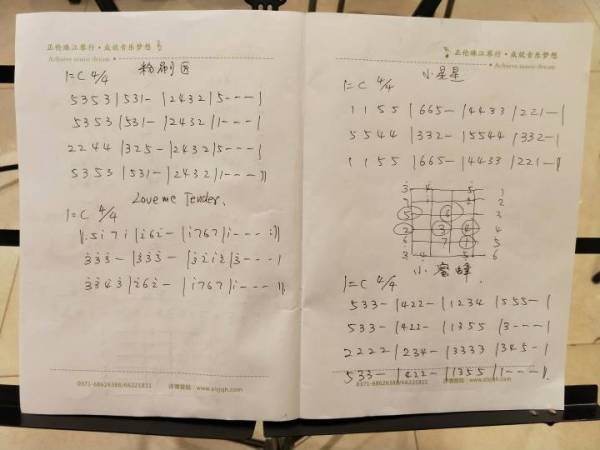 正伦珠江琴行·成就音乐梦想
Achieve music dream
粉刷匠
1=C 4/4
5 3 5 3 | 5 3 1 - | 2 4 3 2 | 5 - - - |
5 3 5 3 | 5 3 1 - | 2 4 3 2 | 1 - - - |
2 2 4 4 | 3 2 5 - | 2 4 3 2 | 5 - - - |
5 3 5 3 | 5 3 1 - | 2 4 3 2 | 1 - - - ||
Love me Tender.
1=C 4/4
||: 5 i 7 i | i̇ 6 i̇ - | i 7 6 7 | i - - - :||
3̇ 3̇ 3̇ - | 3̇ 3̇ 3̇ - | 3̇ 2̇ i̇ 2̇ | 3̇ - - - |
3̇ 3̇ 4̇ 3̇ | 2̇ 6 2̇ - | i 7 6 7 | i - - - ||
0371-68626388/66221811 详情登陆：www.zlqqh.com
正伦珠江琴行·成就音乐梦想
Achieve music dream
小星星
1=C 4/4
1 1 5 5 | 6 6 5 - | 4 4 3 3 | 2 2 1 - |
5 5 4 4 | 3 3 2 - | 5 5 4 4 | 3 3 2 - |
1 1 5 5 | 6 6 5 - | 4 4 3 3 | 2 2 1 - ||
小蜜蜂
1=C 4/4
5 3 3 - | 4 2 2 - | 1 2 3 4 | 5 5 5 - |
5 3 3 - | 4 2 2 - | 1 3 5 5 | 3 - - - |
2 2 2 2 | 2 3 4 - | 3 3 3 3 | 3 4 5 - |
5 3 3 - | 4 2 2 - | 1 3 5 5 | 1 - - - ||
0371-68626388/66221811 详情登陆：www.zlqqh.com